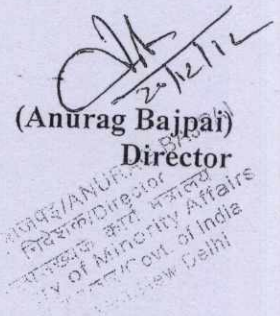 20/12/12
(Anurag Bajpai)
Director
निदेशक/Director
कार्य मंत्रालय
of Minority Affairs
Govt. of India
New Delhi